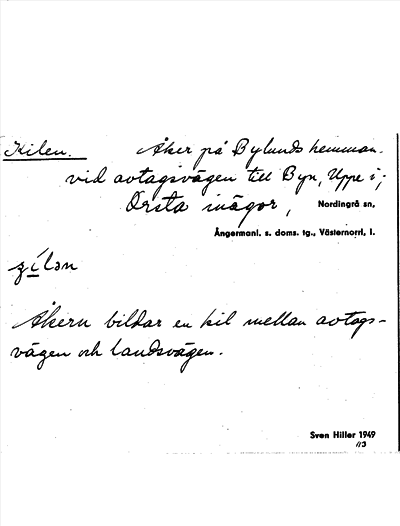 Kilen. Åker på Bylunds hemman.
vid avtagsvägen till Byn, Uppe i,
Örsta inägor, Nordingrå sn,
Ångermanl. s. doms. tg., Västernorrl. l.
Åkern bildar en kil mellan avtags-
vägen och landsvägen.
Sven Hiller 1949
113